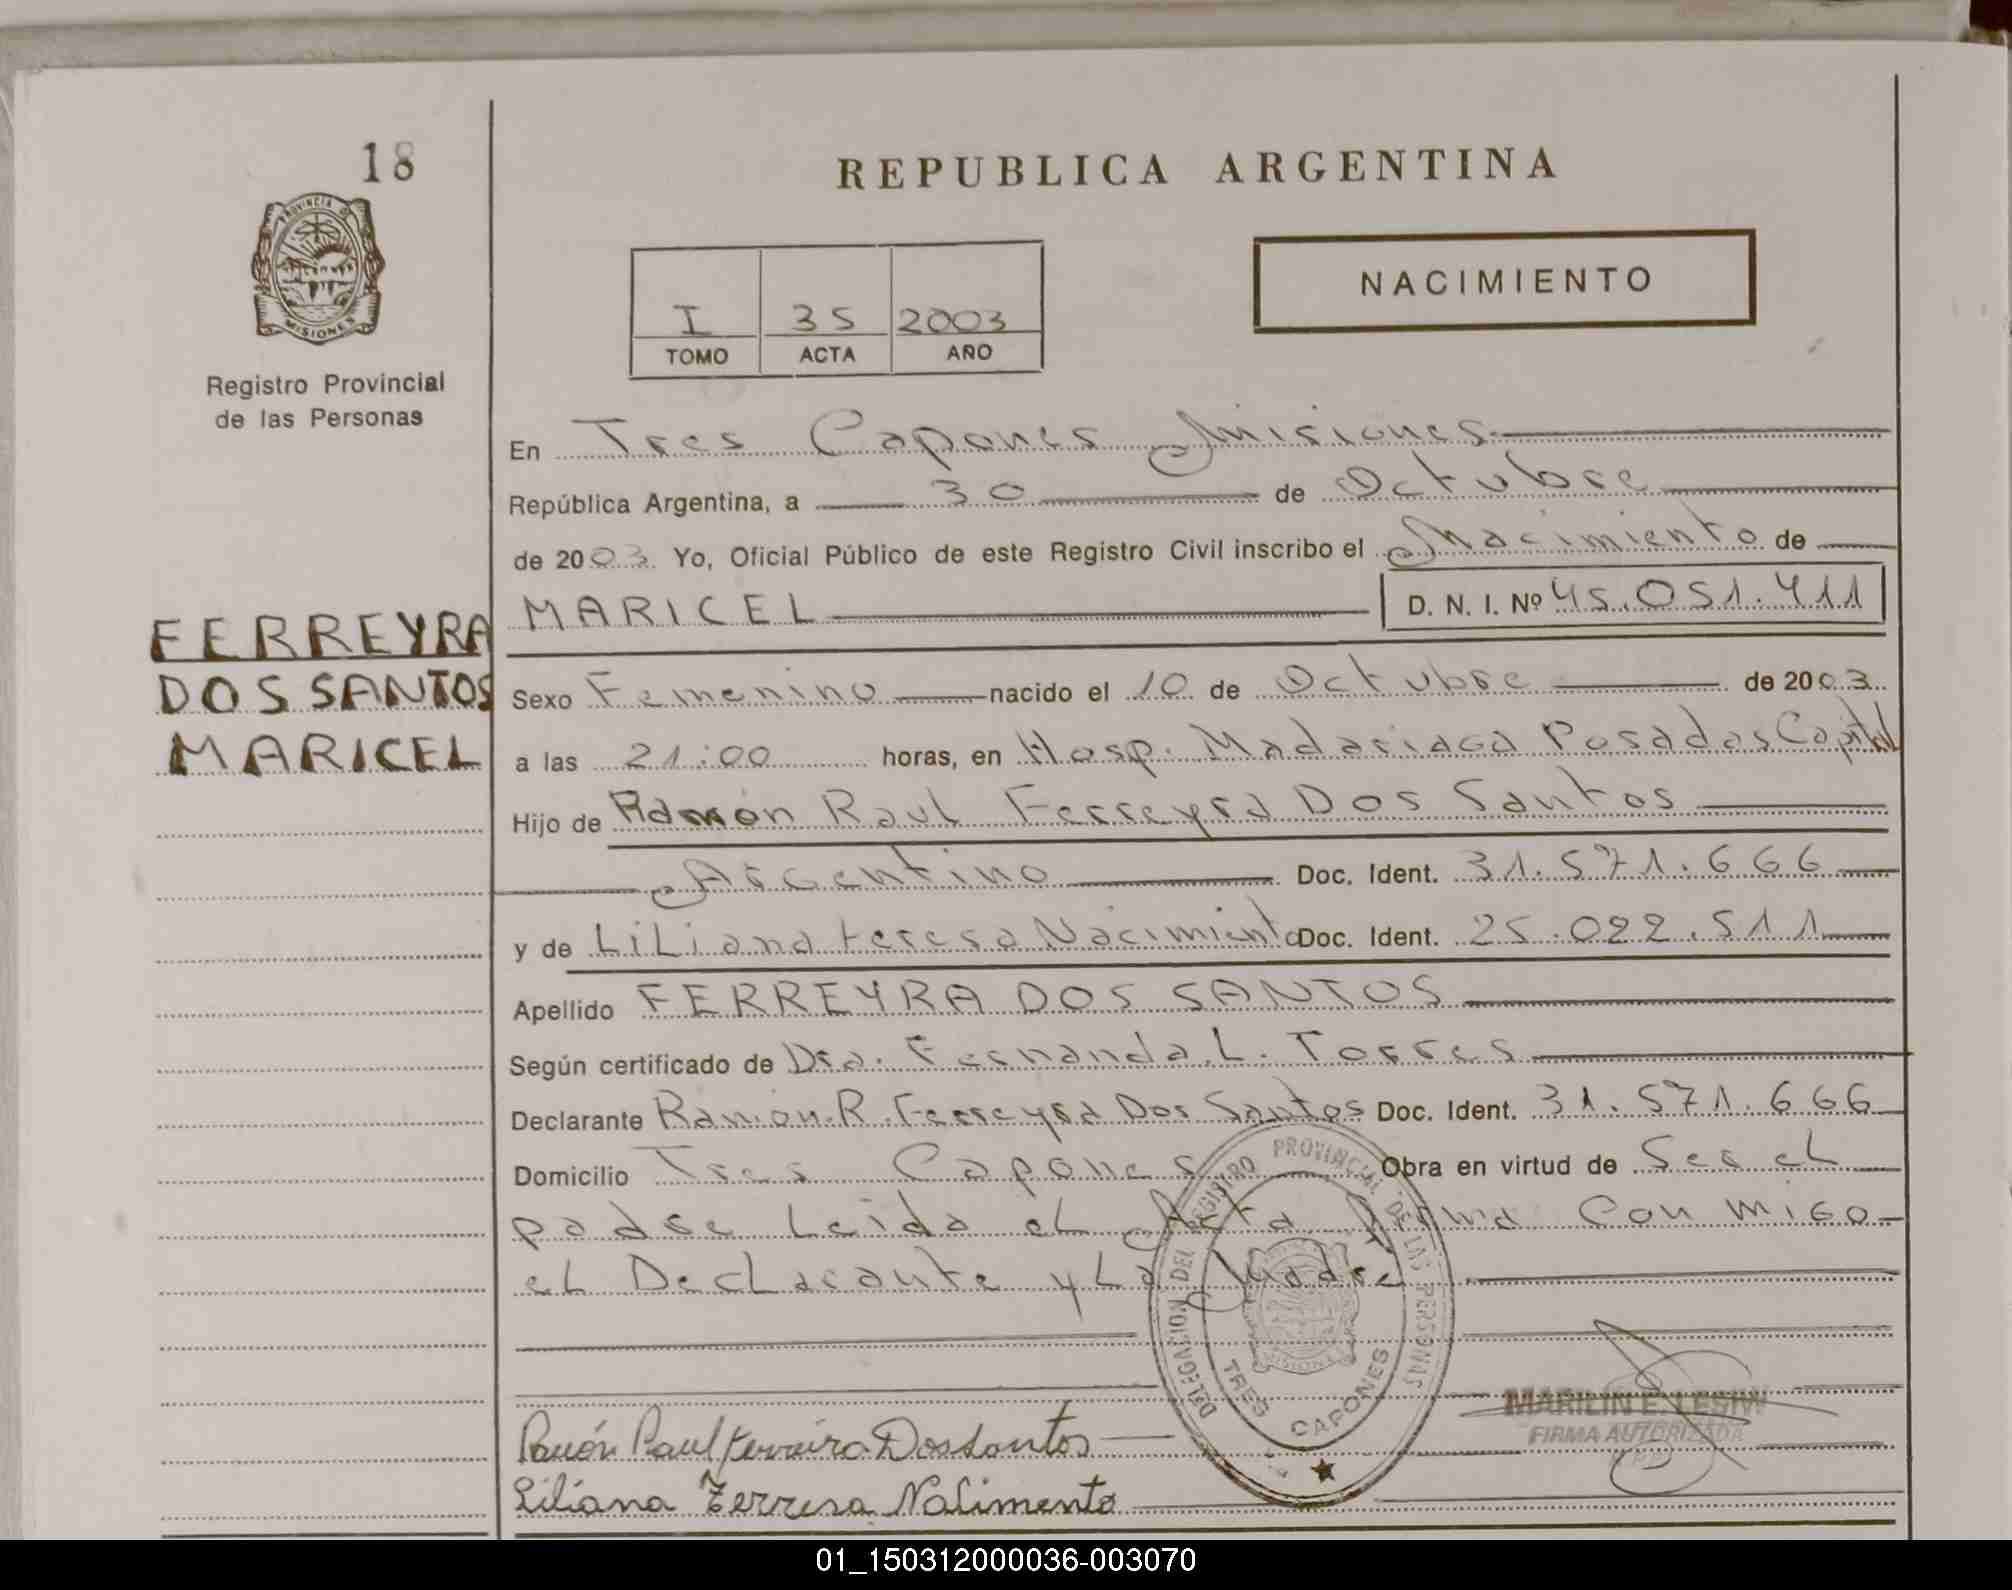 18
REPUBLICA ARGENTINA
PROVINCIA DE
MISIONES
Registro Provincial
de las Personas
I 35 2003
TOMO ACTA AÑO
NACIMIENTO
En Tres Capones Misiones
República Argentina, a 30 de Octubre
de 2003 Yo, Oficial Público de este Registro Civil inscribo el Nacimiento de
MARICEL D. N. I. Nº 45.051.411
FERREYRA
DOS SANTOS
MARICEL
Sexo Femenino nacido el 10 de Octubre de 2003
a las 21:00 horas, en Hosp. Madariaga Posadas Capital
Hijo de Ramón Raul Ferreyra Dos Santos
Argentino Doc. Ident. 31.571.666
y de Liliana teresa Nacimiento Doc. Ident. 25.022.511
Apellido FERREYRA DOS SANTOS
Según certificado de Dra. Fernanda. L. Torres
Declarante Ramón. R. Ferreyra Dos Santos Doc. Ident. 31.571.666
Domicilio Tres Capones Obra en virtud de Ser el
padre Leida el Acta Firma Con migo
el Declarante y La Madre
DELEGACION DEL REGISTRO PROVINCIAL DE LAS PERSONAS
MISIONES
TRES CAPONES
MARILIN E. LESIW
FIRMA AUTORIZADA
Ramón Raul Ferreira Dos Santos
Liliana Terresa Nasimento
01_150312000036-003070